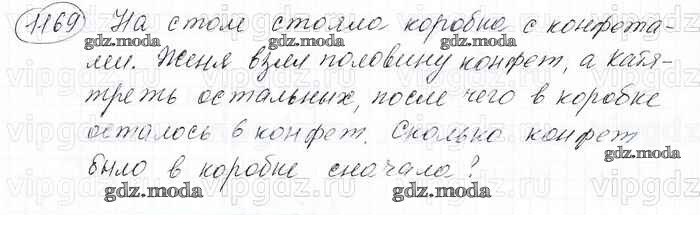 1169 На столе стояла коробка с конфета-
ми. Женя взял половину конфет, а Катя-
треть остальных, после чего в коробке
осталось 6 конфет. Сколько конфет
было в коробке сначала?
gdz.moda gdz.moda gdz.moda
gdz.moda gdz.moda gdz.moda
gdz.moda
gdz.moda gdz.moda gdz.moda